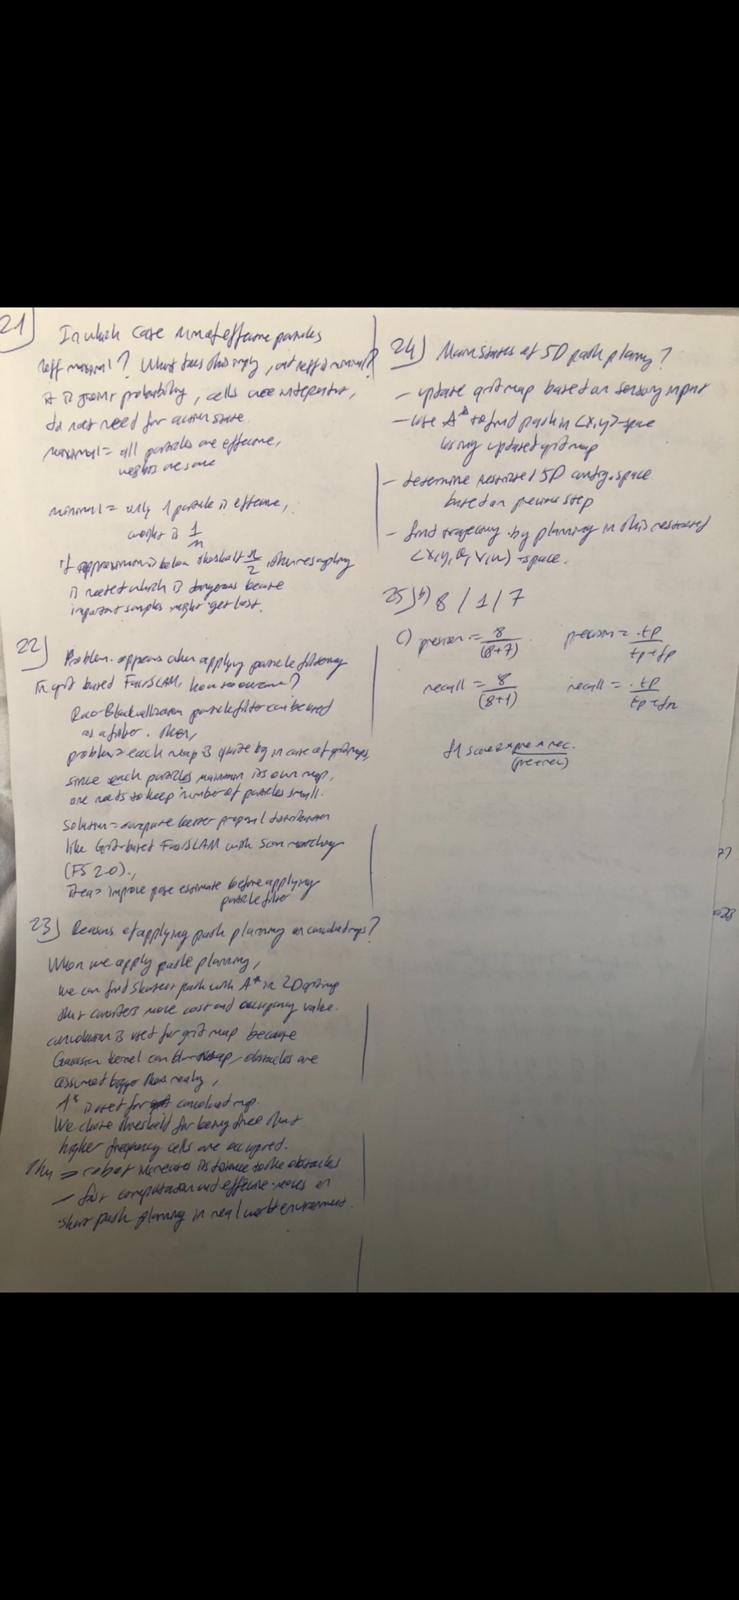 21) In which case number effective particles
neff maximal? What does this imply, and neff minimal?
it is joint probability, cells are
do not need for action state.
maximal = all particles are effective,
weights are same
minimal = only 1 particle is effective,
weight is 1/n
if approximation is below threshold n/2 then resampling
is needed which is dangerous because
important samples might get lost.
22) Problem appears when applying particle filtering
in grid based FastSLAM, how to overcome?
Rao-Blackwellization particle filter can be used
as a filter. then,
problem = each map is quite big in case of grid maps,
since each particles maintain its own map,
one needs to keep number of particles small.
Solution = compute better proposal distribution
like Grid-based FastSLAM with scan matching
(FS 2.0).,
idea = improve pose estimate before applying
particle filter
23) Reasons of applying path planning on convolved maps?
When we apply path planning,
we can find shortest path with A* in 2D grid map
that considers move cost and occupancy value.
convolution is used for grid map because
Gaussian kernel can blur map, obstacles are
assumed bigger than really,
A* is used for convolved map.
We chose threshold for being free that
higher frequency cells are occupied.
→ robot increases its distance to the obstacles
— fast computation and effective moves on
short path planning in real world environment.
24) Main states of 5D path planning?
— update grid map based on sensory input
— Use A* to find path in <x,y>-space
using updated grid map
— determine restricted 5D config. space
based on previous step
— find trajectory by planning in this restricted
<x,y,θ,v,w>-space.
25) b) 8 / 1 / 7
c) precision = 8/(8+7) precision = tp/tp+fp
recall = 8/(8+1) recall = tp/tp+fn
f1 score = 2 × pre × rec. / (pre+rec)